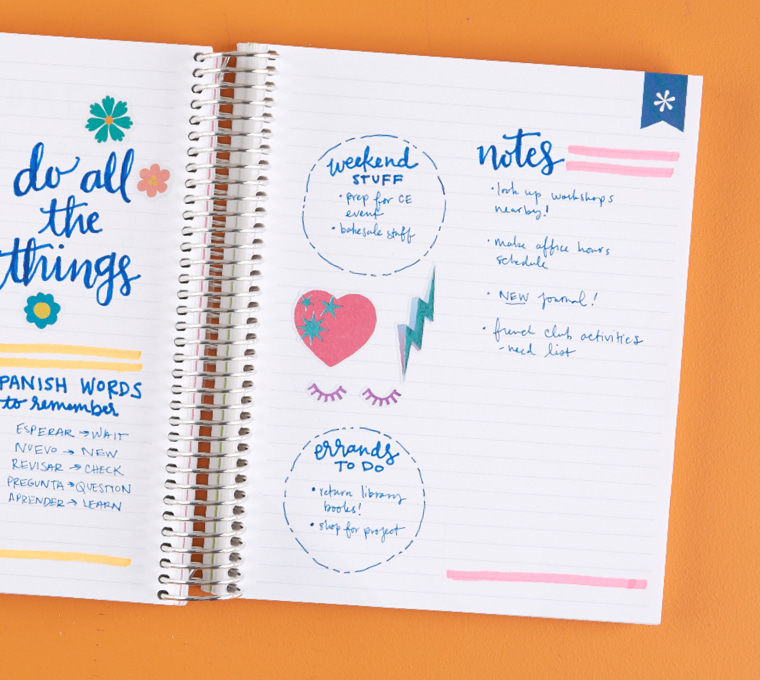 do all
the
things
PANISH WORDS
to remember
ESPERAR → WAIT
NUEVO → NEW
REVISAR → CHECK
PREGUNTA → QUESTION
APRENDER → LEARN
weekend
STUFF
• prep for CE
event
• bakesale stuff
errands
TO DO
• return library
books!
• shop for project
notes
• look up workshops
nearby!
• make office hours
schedule
• NEW journal!
• french club activities
- need list